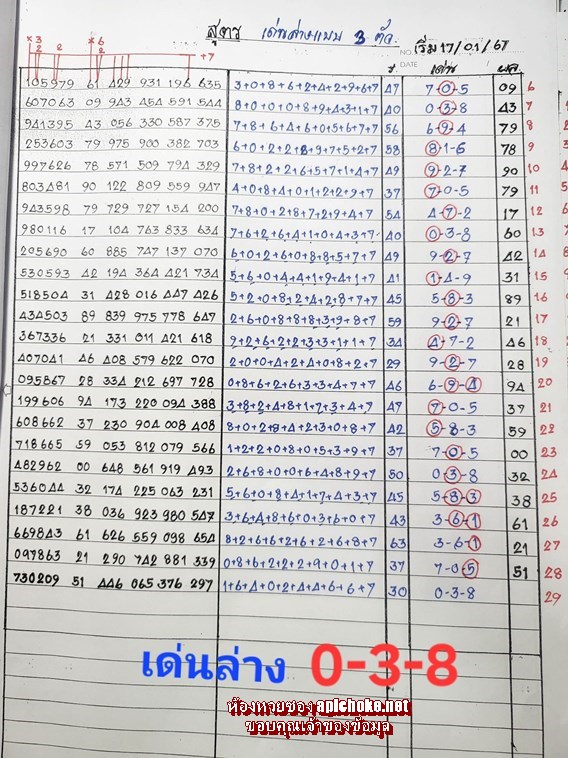 สูตร เด่นล่างแบบ 3 ตัว
NO. เริ่ม 17/01/67
DATE
*3 2 *6
2 2 +7
ร. เด่น ผล
105979 61 429 931 196 635 3+0+8+6+2+4+2+9+6+7 47 7-0-5 09 6
607063 09 943 454 591 544 8+0+0+0+8+9+4+3+1+7 40 0-3-8 43 7
941395 43 056 330 587 375 7+8+6+4+6+0+5+6+7+7 56 6-9-4 79 8
253603 79 975 900 382 703 6+0+2+2+8+9+7+5+2+7 58 8-1-6 78 9
997626 78 571 509 794 329 7+8+2+2+6+5+7+1+4+7 49 9-2-7 90 10
803481 90 122 809 559 947 4+0+8+4+0+1+2+2+9+7 37 7-0-5 79 11
943598 79 729 727 154 200 7+8+0+2+8+7+2+9+4+7 54 4-7-2 17 12
980116 17 104 763 833 634 7+6+2+6+4+1+0+4+3+7 40 0-3-8 60 13
205690 60 885 747 137 070 6+0+2+6+0+8+8+5+7+7 49 9-2-7 42 14
530593 42 194 364 421 734 5+6+0+4+4+1+9+4+1+7 41 1-4-9 31 15
518504 31 428 016 447 426 5+2+0+8+2+4+2+8+7+7 45 5-8-3 89 16
434503 89 839 975 778 647 2+6+0+8+8+8+3+9+8+7 59 9-2-7 21 17
367336 21 331 011 421 618 9+2+6+2+2+3+3+1+1+7 34 4-7-2 46 18
407041 46 408 579 622 070 2+0+0+4+2+4+0+8+2+7 29 9-2-7 28 19
095867 28 334 212 697 728 0+8+6+2+6+3+3+4+7+7 46 6-9-4 94 20
199606 94 173 220 094 388 3+8+2+4+8+1+7+3+4+7 47 7-0-5 37 21
608662 37 230 904 008 408 8+0+2+8+4+2+3+0+8+7 42 5-8-3 59 22
718665 59 053 812 079 566 1+2+2+0+8+0+5+3+9+7 37 7-0-5 00 23
482962 00 648 561 919 493 2+6+8+0+0+6+4+8+9+7 50 0-3-8 32 24
536044 32 174 225 063 231 5+6+0+8+4+1+7+4+3+7 45 5-8-3 38 25
187221 38 036 923 980 547 3+6+4+8+6+0+3+6+0+7 43 3-6-1 61 26
669843 61 626 559 098 654 8+2+6+6+2+6+2+6+8+7 63 3-6-1 21 27
097863 21 290 742 881 339 0+8+6+2+2+2+9+0+1+7 37 7-0-5 51 28
730209 51 446 065 376 297 1+6+4+0+2+4+4+6+6+7 30 0-3-8 29
เด่นล่าง 0-3-8
ห้องหวยซอง apichoke.net
ขอบคุณเจ้าของข้อมูล